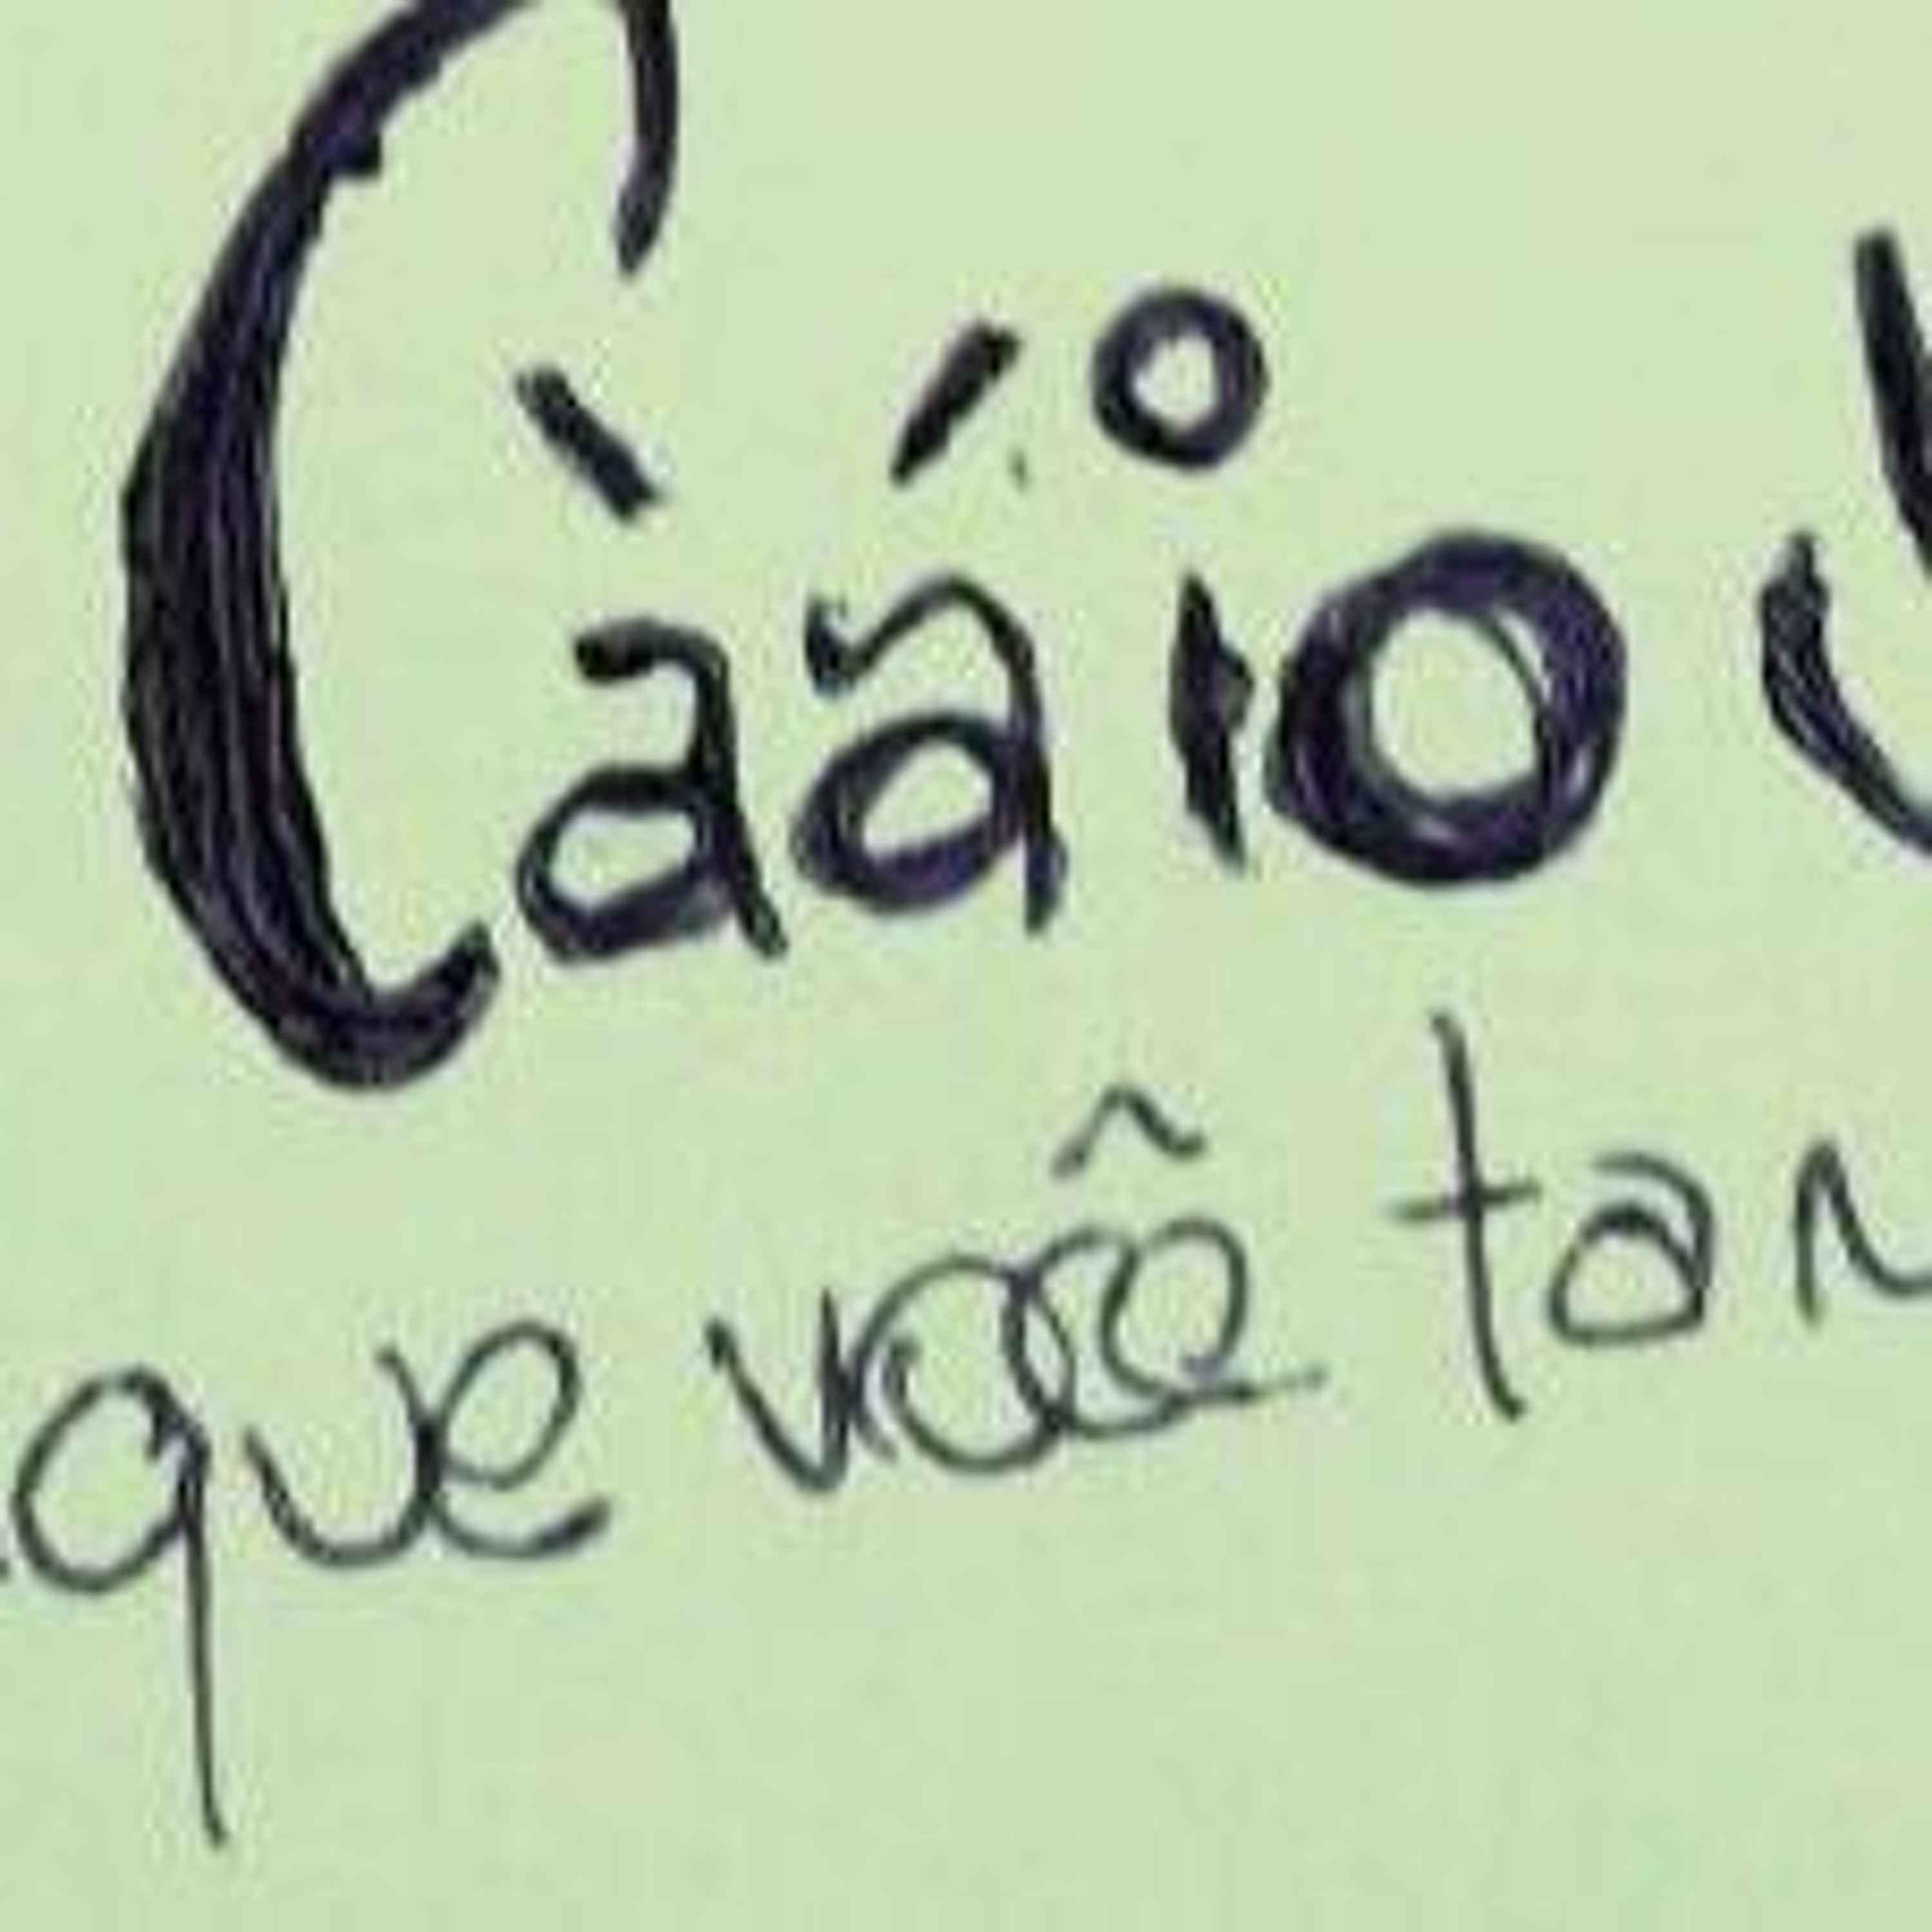 Càáio
que você tan